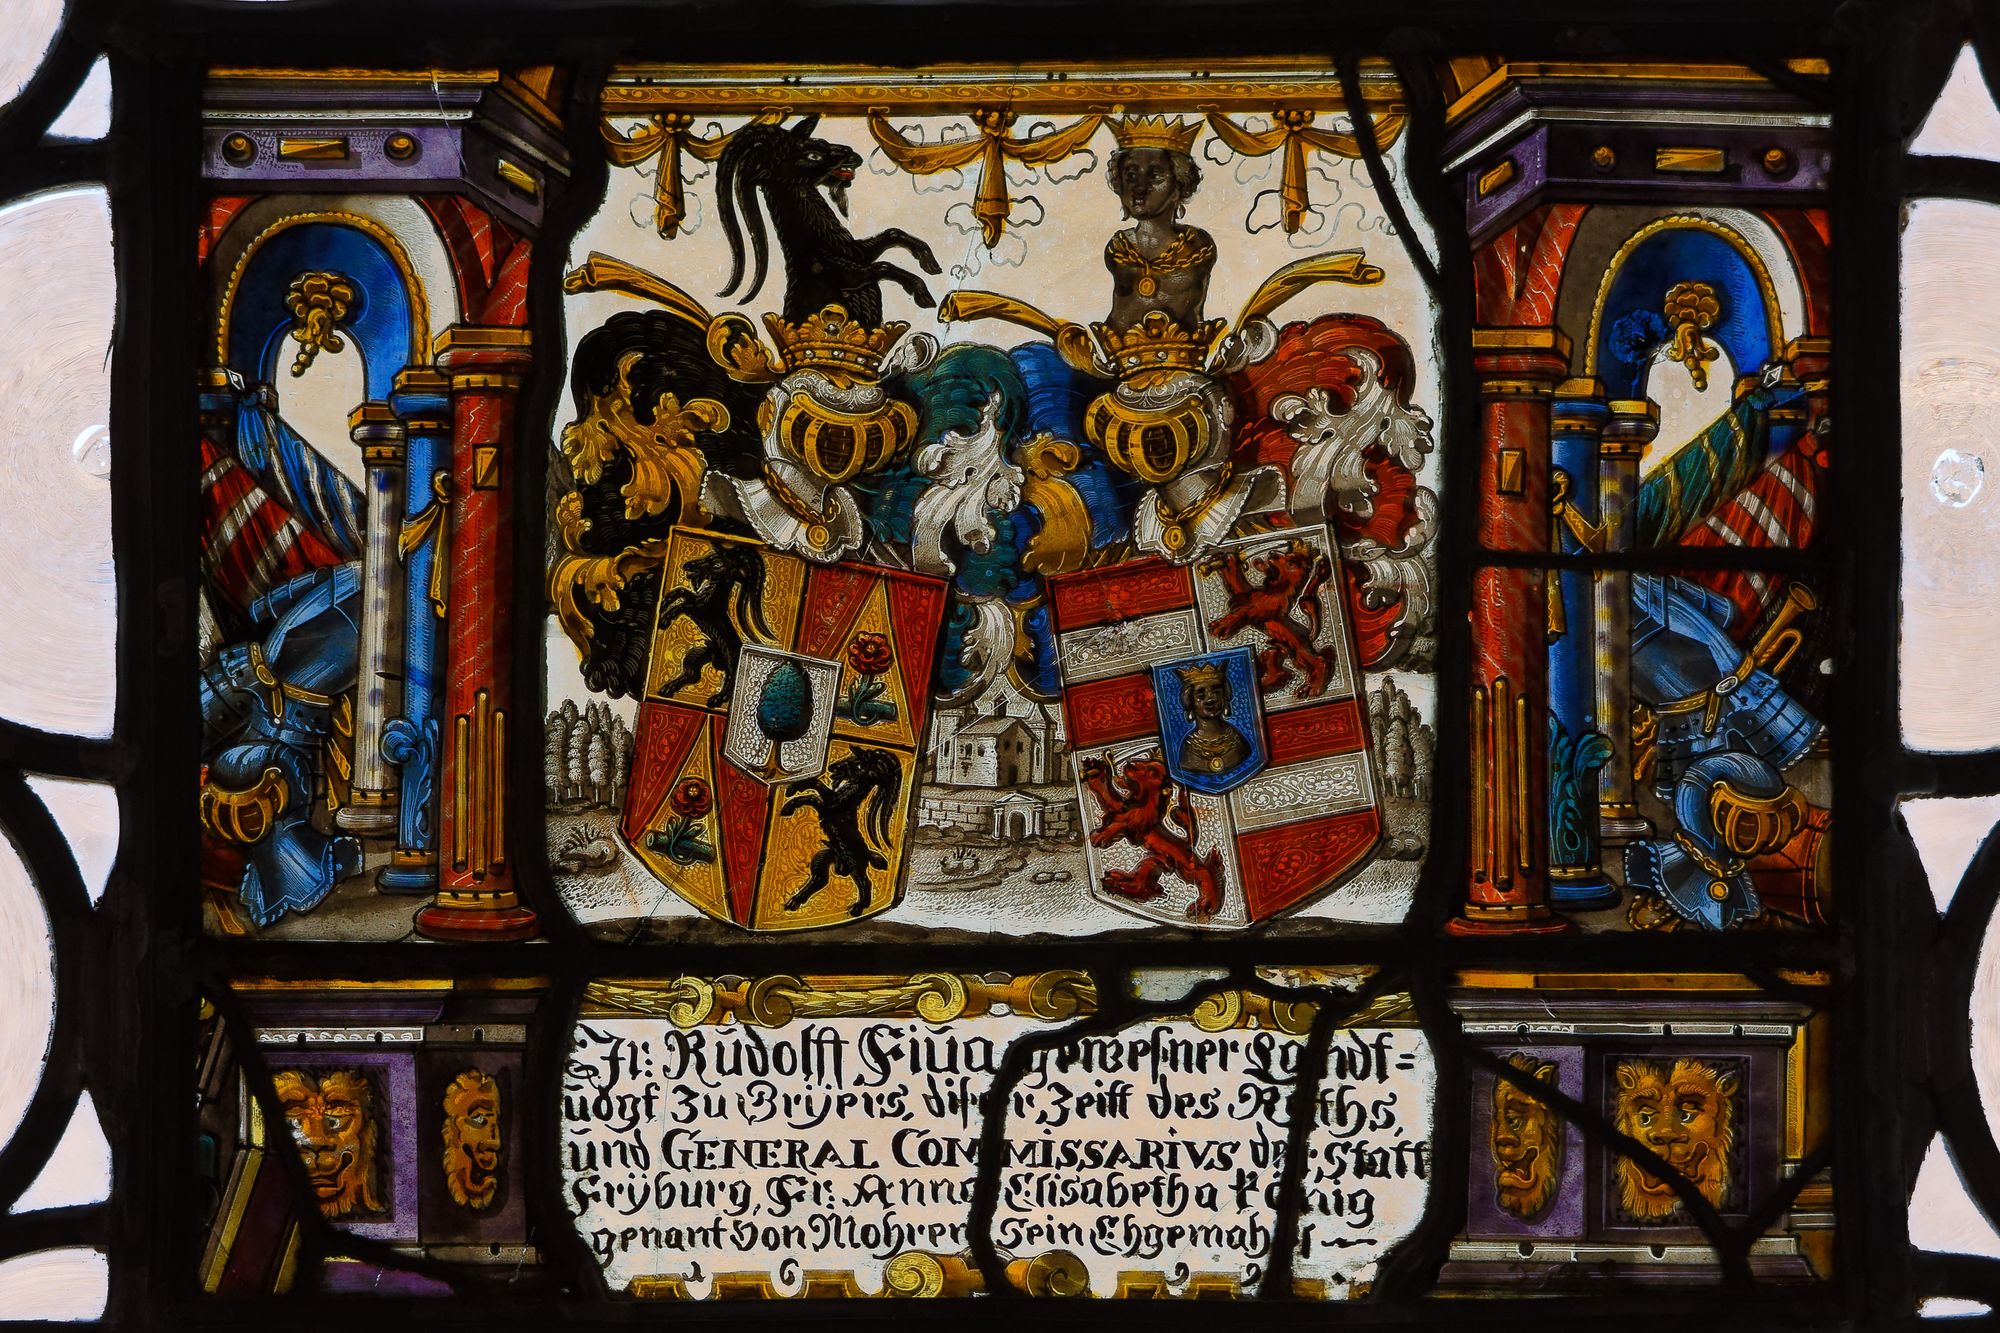 Jr: Rŭdolff Fiŭa gewesner Landt=
ŭogt zu Grÿers, diser Zeitt des Raths,
ŭnd GENERAL COMMISSARIVS der Statt
Frÿbŭrg, Fr: Anna Elisabetha König
genant Von Mohren Sein Ehgemahel —